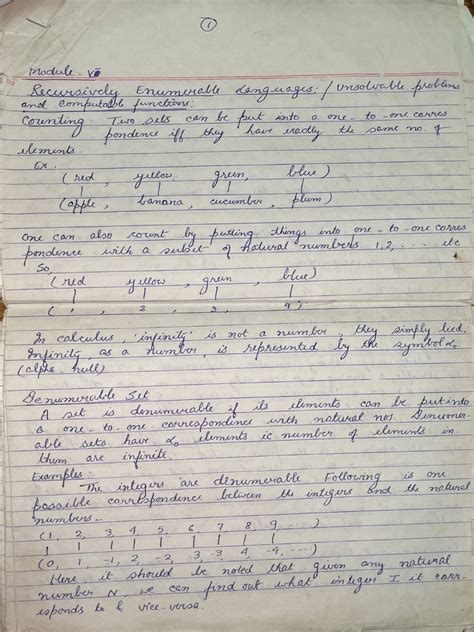 1
Module - VII
Recursively Enumerable Languages: / Unsolvable problems
and computable functions:
Counting: Two sets can be put into a one-to-one corres
pondence iff they have exactly the same no. of
elements.
Ex.
(red, yellow, green, blue)
(apple, banana, cucumber, plum)
One can also count by putting things into one-to-one corres
pondence with a subset of natural numbers 1, 2, ... etc
So,
(red, yellow, green, blue)
(1, 2, 3, 4)
In calculus, 'infinity' is not a number, they simply lied,
Infinity, as a number, is represented by the symbol α₀
(alpha null)
Denumerable Set
A set is denumerable if its elements can be put into
a one-to-one correspondence with natural nos. Denumer
able sets have α₀ elements ie number of elements in
them are infinite.
Examples:
The integers are denumerable. Following is one
possible correspondence between the integers and the natural
numbers -
(1, 2, 3, 4, 5, 6, 7, 8, 9, ....)
(0, 1, -1, 2, -2, 3, -3, 4, -4, ....)
Here it should be noted that given any natural
number N, we can find out what integer I it corr-
esponds to & vice-versa.